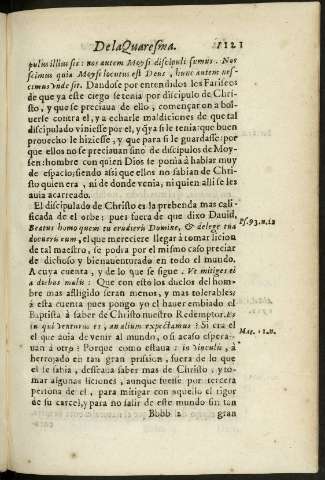 De la Quaresma. 1121
pulus illius sis: nos autem Moysi discipuli sumus. Nos
scimus quia Moysi locutus est Deus, hunc autem nes-
cimus unde sit. Dandose por entendidos los Fariseos
de que ya este ciego se tenia por discipulo de Chris-
to, y que se preciaua de ello, començaron a bol-
uerse contra el, y a echarle maldiciones de que tal
discipulado viniesse por el, y q̃ya si le tenia: que buen
prouecho le hiziesse, y que para si le guardasse: por
que ellos no se preciauan sino de discipulos de Moy-
sen: hombre con quien Dios se ponia à hablar muy
de espacio; siendo assi que ellos no sabian de Chris-
to quien era, ni de donde venia, ni quien alli se les
auia acarreado.
El discipulado de Christo es la prebenda mas cali-
ficada de el orbe: pues fuera de que dixo Dauid,
Beatus homo quem tu erudieris Domine, & de lege tua
docueris eum, el que mereciere llegar à tomar licion
de tal maestro, se podra por el mismo caso preciar
de dichoso y bienauenturado en todo el mundo.
A cuya cuenta, y de lo que se sigue. Vt mitiges ei
a diebus malis: Que con esto los duelos del hom-
bre mas afligido seran menos, y mas tolerables:
à esta cuenta pues pongo yo el hauer embiado el
Baptista à saber de Christo nuestro Redemptor. Es
tu qui venturus es, an alium expectamus: Si era el
el que auia de venir al mundo, o si acaso espera-
uan à otro? Porque como estaua: in vinculis, à
herrojado en tan gran prission, fuera de lo que
el se sabia, desseaua saber mas de Christo, y to-
mar algunas liciones, aunque fuesse por tercera
persona de el, para mitigar con aquello el rigor
de su carcel, y para no salir de este mundo sin tan
Bbbb 2 gran
Ps. 93. n. 12
Mat. 11. n.